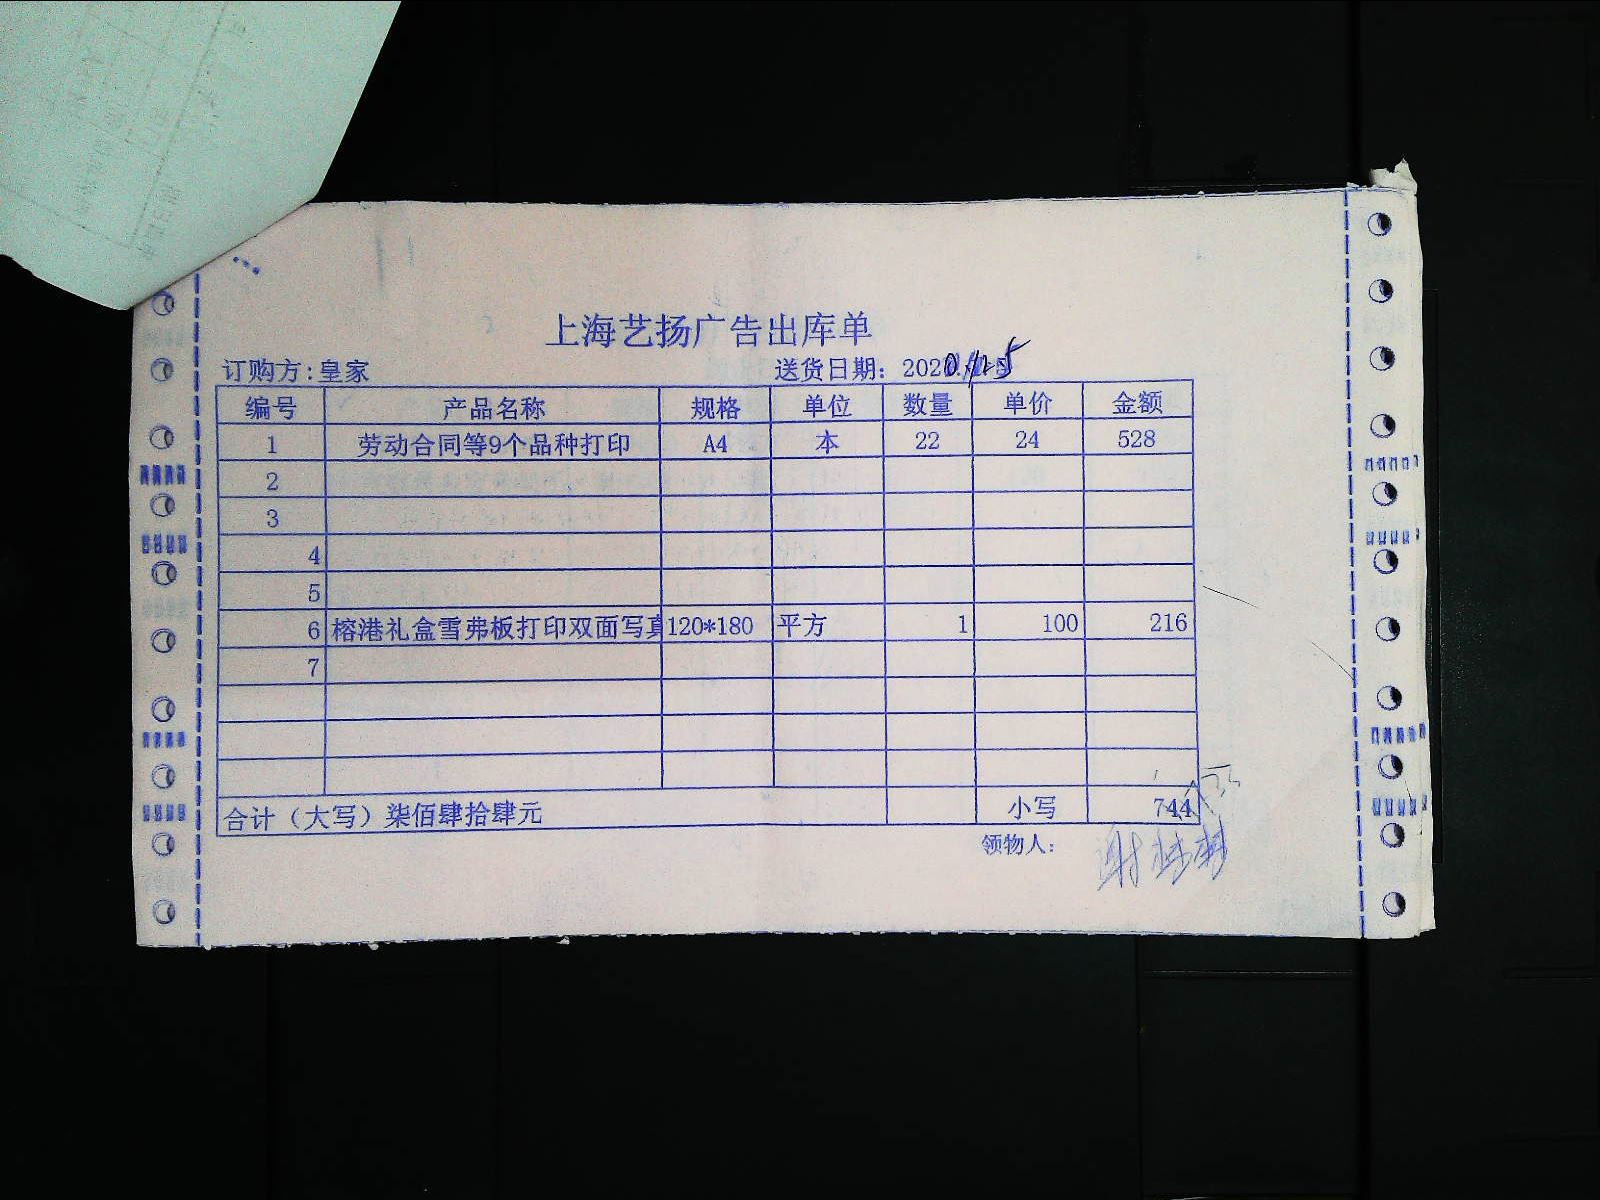 上海艺扬广告出库单
订购方:皇家 送货日期: 2020.
编号 产品名称 规格 单位 数量 单价 金额
1 劳动合同等9个品种打印 A4 本 22 24 528
2
3
4
5
6 榕港礼盒雪弗板打印双面写真 120*180 平方 1 100 216
7
合计（大写）柒佰肆拾肆元 小写 744
领物人: